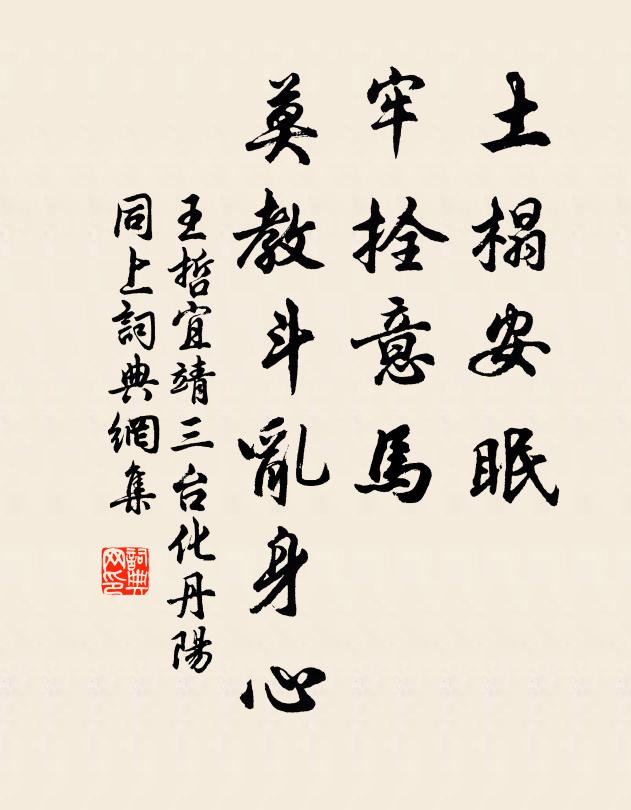 土榻安眠
牢拴意馬
莫教斗亂身心
王哲宜靖三台化丹陽
同上詞典網集
詞典
网印